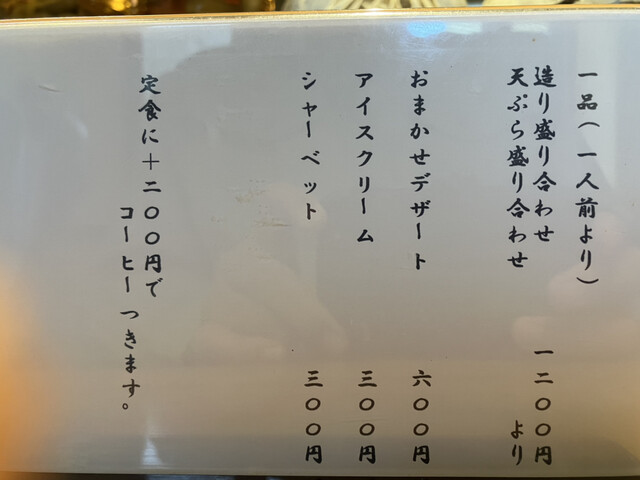 一品(一人前より)
造り盛り合わせ 一二〇〇円
天ぷら盛り合わせ より
おまかせデザート 六〇〇円
アイスクリーム 三〇〇円
シャーベット 三〇〇円
定食に+二〇〇円で
コーヒーつきます。